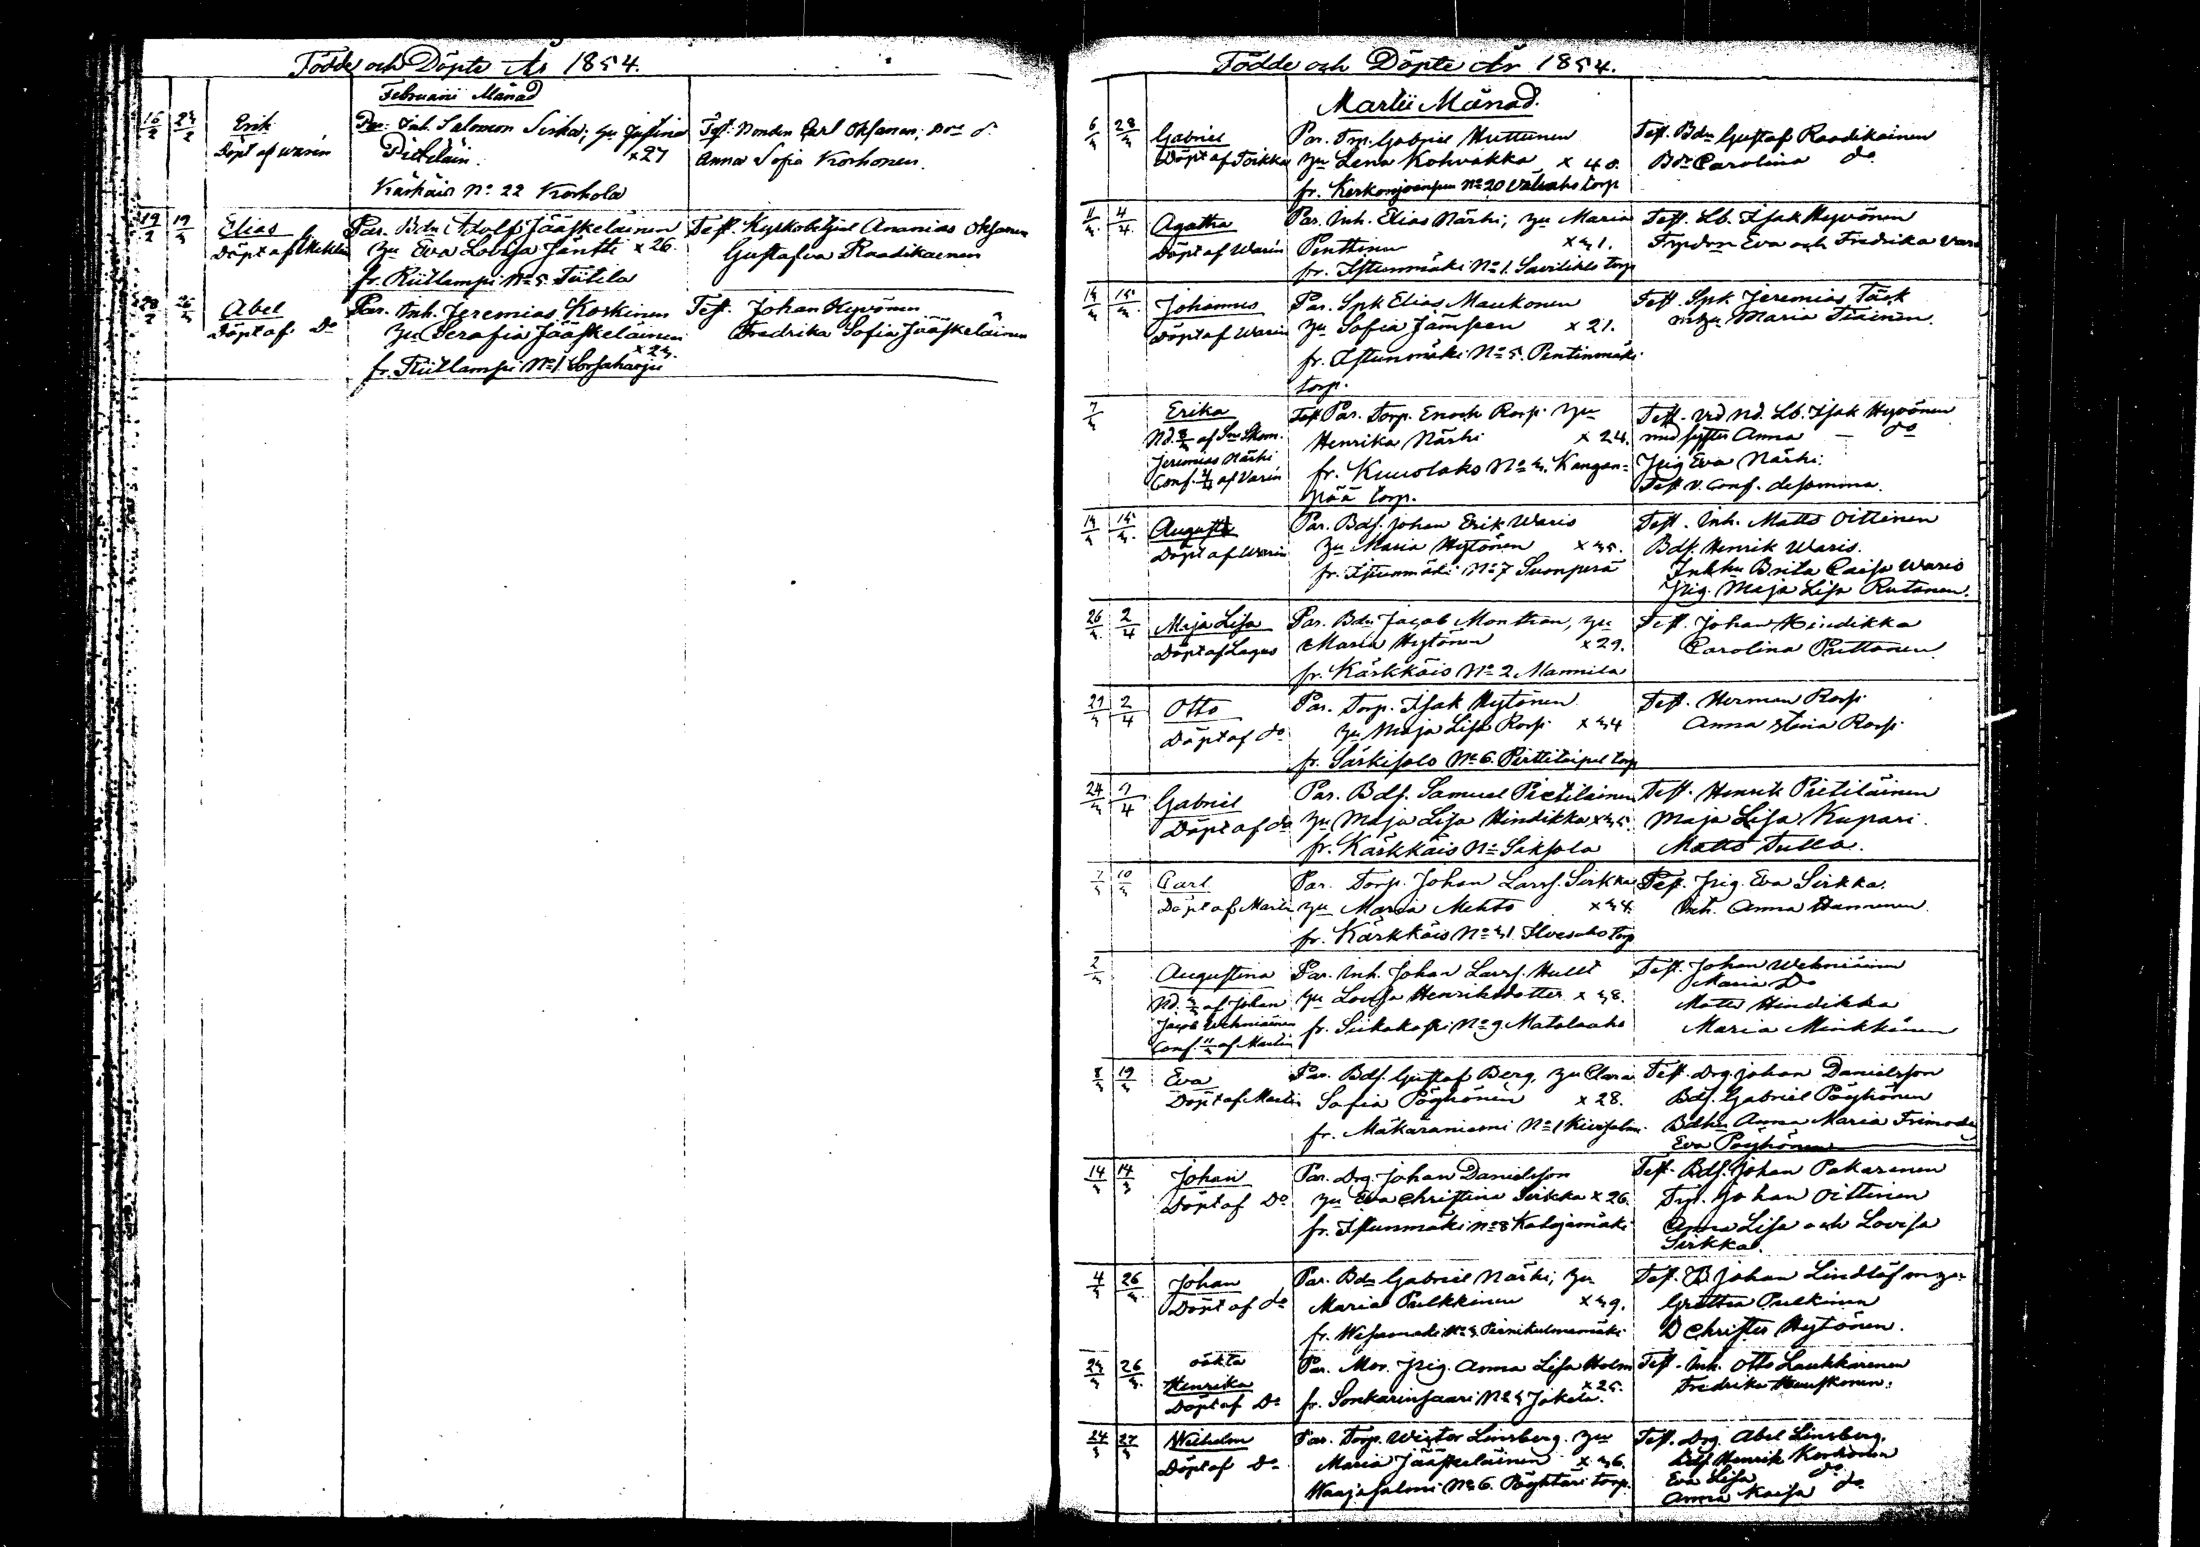 Födde och Döpte År 1854.
Februarii Månad
16/2 24/2 Erik
Döpt af Warin
Par. Inh. Salomon Sirka; hu Justina
Pietiläin. x27
Kärkäis No 22 Korhola
Test. Bonden Carl Oksanen;
Anna Sofia Korhonen.
19/2 19/3 Elias
Döpt af
Par. Bdn Adolf Jääskeläinen
hu Eva Lovisa Jäntti x 26.
fr. Riitlampi No 5 Tiitela
Test. Kyrkobetjent Ananias Oksanen
Gustafva Raadikainen
28/2 26/3 Abel
Döpt af Do
Par. Inh. Jeremias Koskinen
hu Serafia Jääskeläinen
x 23.
fr. Riitlampi No 1 Sorsaharju
Test. Johan Hyvönen
Fredrika Sofia Jääskeläinen
Födde och Döpte År 1854.
Martii Månad.
6/3 28/3 Gabriel
Döpt af Toikka
Par. Trp. Gabriel Huttunen
hu Lena Kohvakka x 40.
fr. Kerkonjoensuu No 20 Valkaho torp
Test. Bdn Gustaf Raadikainen
Bdr Carolina do
11/3 4/4 Agatha
Döpt af Warin
Par. Inh. Elias Närhi; hu Maria
Penttinen x 31.
fr. Istunmäki No 1. Savilikko torp
Test. Lb. Isak Hyvönen
Trpdrn Eva och Fredrika
14/3 15/3 Johannes
Döpt af Warin
Par. Spk Elias Maukonen
hu Sofia Jämsen x 21.
fr. Istunmäki No 5. Pentinmäki
torp.
Test. Spk. Jeremias Täck
m hu Maria Tiainen.
7/3 Erika
Nd. 8/3 af Sn Skom.
Jeremias Närhi
Conf. af Varin
Par. Torp. Enoch Rorp. hu
Henrika Närhi x 24.
fr. Kuuslaks No 3. Kangan=
pää torp.
Test. vid Nd. Lb. Isak Hyvönen
med syster Anna — do
Pig Eva Närhi.
Test v. Conf. desamma.
14/3 15/3 August
Döpt af Warin
Par. Bds. Johan Erik Waris
hu Maria Hytönen x 35.
fr. Istunmäki No 7 Suonperä
Test. Inh. Matts Oittinen
Bds. Henrik Waris.
Inhhu Brita Caisa Waris
Pig. Maja Lisa Rutanen.
26/3 2/4 Maja Lisa
Döpt af Lagus
Par. Bdn Jacob Manttan, hu
Maria Hytönen x 29.
fr. Kärkkäis No 2 Mannila
Test. Johan Hindikka
Carolina Puttonen
21/3 2/4 Otto
Döpt af do
Par. Torp. Isak Hytönen
hu Maja Lisa Rorp. x 34
fr. Särkisalo No 6. Pirttitaipal torp
Test. Herman Rorp.
Anna Stina Rorp.
24/3 7/4 Gabriel
Döpt af do
Par. Bds. Samuel Pietiläinen
hu Maja Lisa Hindikka x 35.
fr. Kärkkäis No Siksola
Test. Henrik Pietiläinen
Maja Lisa Kupari.
Matts Tulla.
7/3 10/3 Carl
Döpt af Martin
Par. Torp. Johan Larss. Sirkka
hu Maria Mehto x 34.
fr. Kärkkäis No 31 Ilvesaho torp
Test. Pig. Eva Sirkka.
Inh. Anna Hannunen.
2/3 Augustina
Nd. 3/3 af Johan
Jacob Wehniäinen
Conf. 11/3 af Martin
Par. Inh. Johan Larss. Hult
hu Lovisa Henriksdotter x 38.
fr. Siikakoski No 9 Matalaaho
Test. Johan Wehniäinen
Maria Do
Matts Hindikka
Maria Minkkinen
8/3 19/3 Eva
Döpt af Martin
Par. Bds. Gustaf Berg, hu Clara
Sofia Pöyhönen x 28.
fr. Mäkäraniemi No 1 Kivisalmi
Test. Drg. Johan Danielsson
Bds. Gabriel Pöyhönen
Bdhu Anna Maria Frimodig
Eva Pöyhönen
14/3 14/3 Johan
Döpt af Do
Par. Drg. Johan Danielsson
hu Eva Christina Sirkka x 26.
fr. Istunmäki No 8 Katajamäki
Test. Bds. Johan Pakarinen
Trp. Johan Oittinen
Anna Lisa och Lovisa
Sirkka.
4/3 26/3 Johan
Döpt af do
Par. Bdn Gabriel Närhi; hu
Maria Pulkkinen x 39.
fr. Wesamäki No 3
Test. B Johan Lindlöf
Gretha Pulkinen
D Christer Hytönen.
23/3 26/3 oäkta
Henrika
Döpt af Do
Par. Mor. Pig. Anna Lisa Holm
x 25.
fr. Sonkarinsaari No 5 Jokela.
Test. Inh. Otto Laukkarinen
Fredrika
24/3 27/3 Wilhelm
Döpt af Do
Par. Torp. Wictor Linsberg. hu
Maria Jääskeläinen x 36.
Waajasalmi No 6. Pöyhtäri torp.
Test. Drg. Abel Linsberg.
Bds Henrik Korhonen
Eva Lisa do
Anna Kaisa do